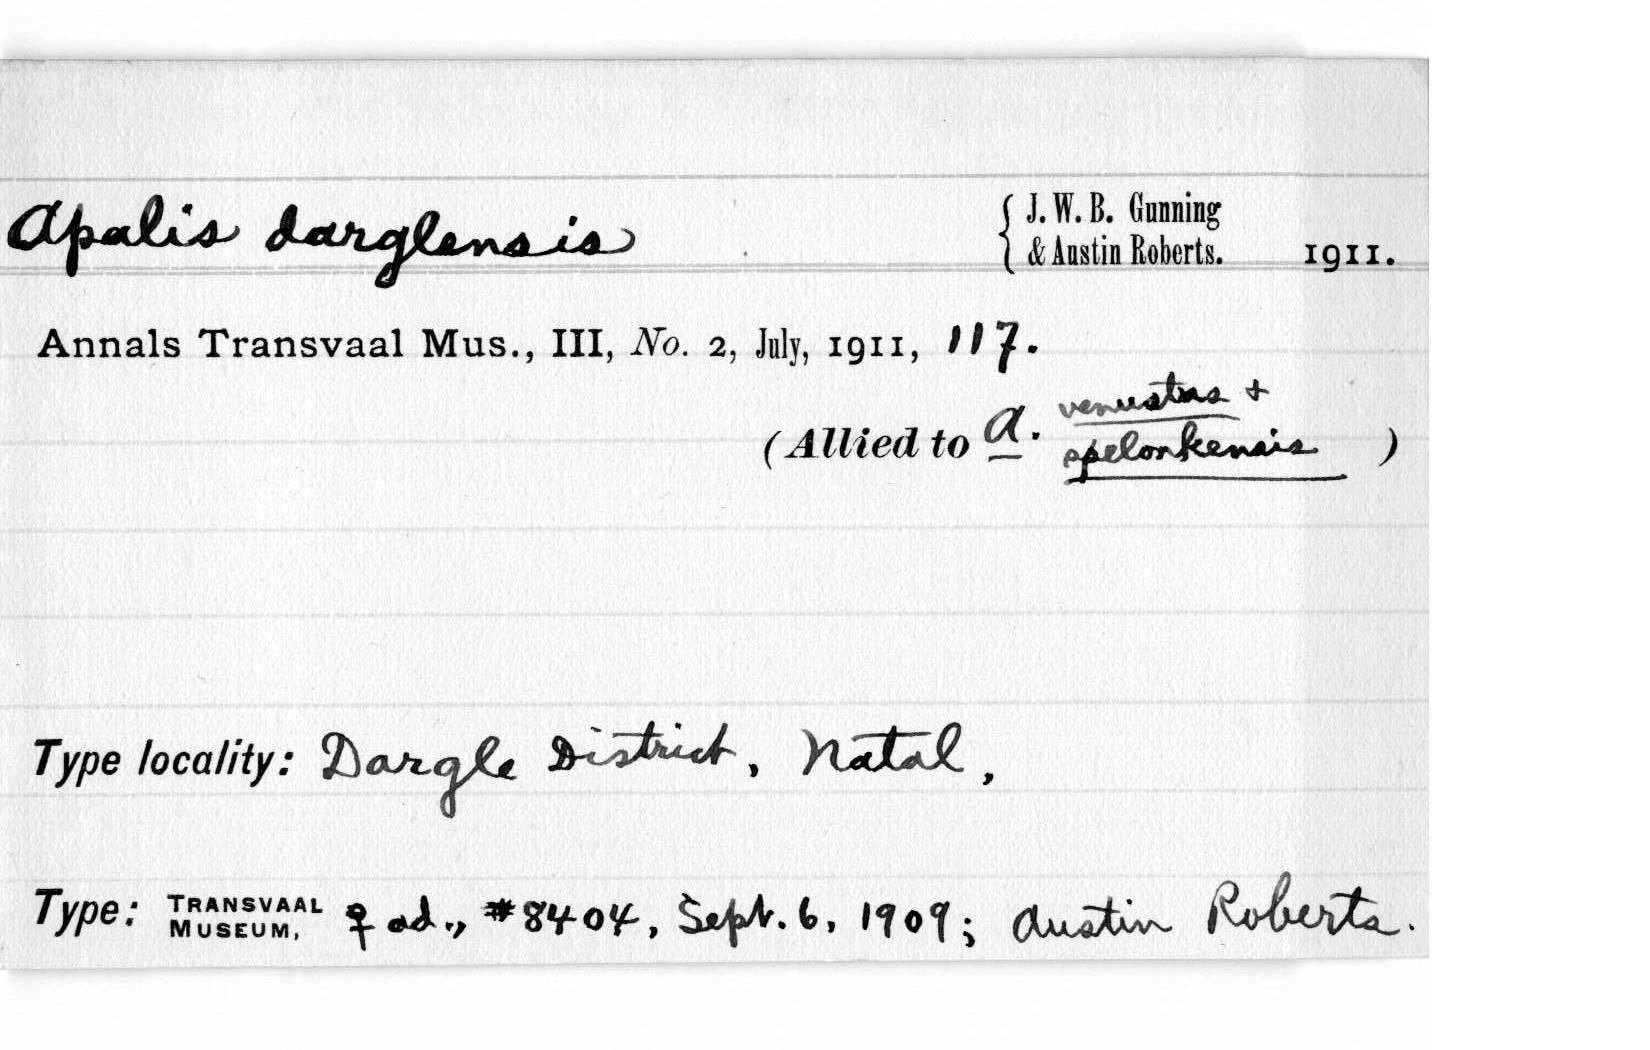 Apalis darglensis { J. W. B. Gunning
& Austin Roberts. 1911.
Annals Transvaal Mus., III, No. 2, July, 1911, 117.
(Allied to A. venustas +
spelonkensis )
Type locality: Dargle District, Natal,
Type: TRANSVAAL MUSEUM, ♀ ad., #8404, Sept. 6, 1909; Austin Roberts.